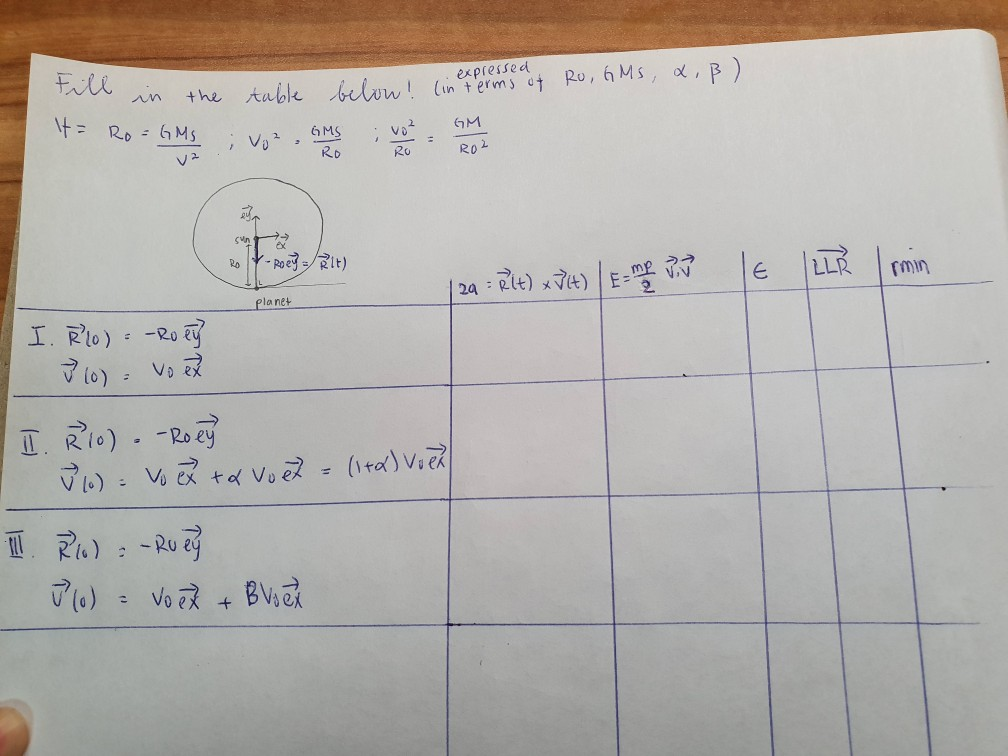 Fill in the table below! (in terms of expressed R0, GMs, α, β)
H= R0 = GMs/V² ; V0² = GMs/R0 ; V0²/R0 = GM/R0²
ey
sun ex
R0 -R0ey = R(t)
planet
2a = R(t) × V(t) E = mp/2 V.V ε LLR rmin
I. R(0) = -R0 ey
V(0) = V0 ex
II. R(0) = -R0 ey
V(0) = V0 ex + α V0 ex = (1+α) V0 ex
III. R(0) = -R0 ey
V(0) = V0 ex + BV0 ex